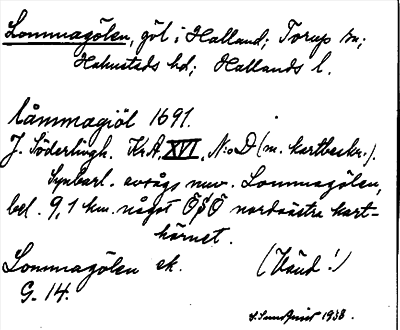 Lommagölen, göl i Halland; Torup sn;
Halmstads hd; Hallands l.
låmmagiöl 1691.
J. Söderlingh. Kr.A. XVI, N:o D (m. kartbeskr.).
Synbarl. avsågs nuv. Lommagölen,
bel. 9,1 km. något ÖSÖ nordvästra kart-
hörnet.
Lommagölen ek. (Vänd!)
G. 14.
1938.